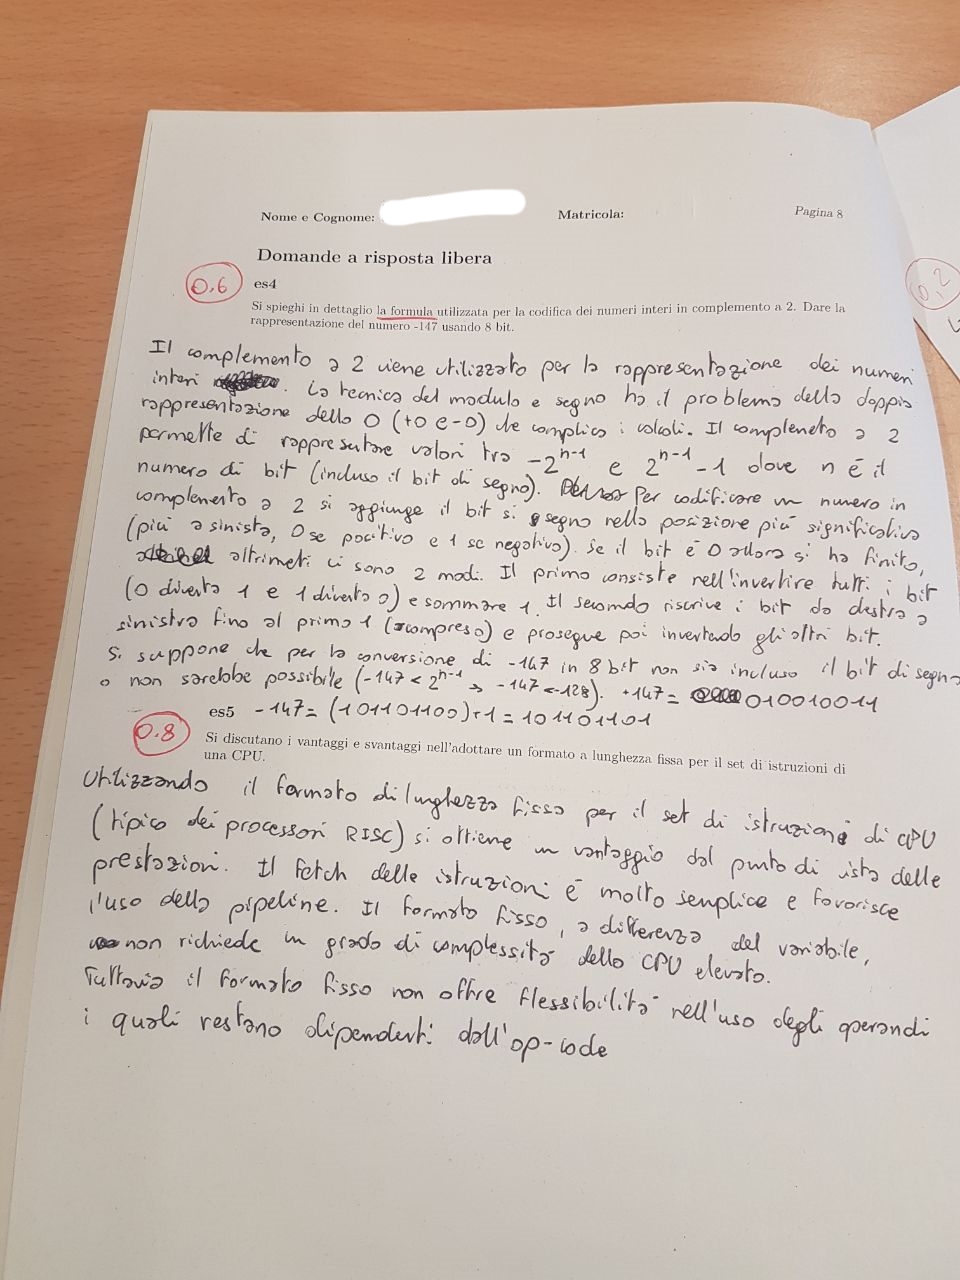 Nome e Cognome: Matricola: Pagina 8
Domande a risposta libera
0.6 es4
0.2
Si spieghi in dettaglio la formula utilizzata per la codifica dei numeri interi in complemento a 2. Dare la
rappresentazione del numero -147 usando 8 bit.
Il complemento a 2 viene utilizzato per la rappresentazione dei numeri
interi . La tecnica del modulo e segno ha il problema della doppia
rappresentazione dello 0 (+0 e -0) che complica i calcoli. Il complemeto a 2
permette di rappresentare valori tra -2^n-1 e 2^n-1 -1 dove n è il
numero di bit (incluso il bit di segno). Per codificare un numero in
complemento a 2 si aggiunge il bit si segno nella posizione più significativa
(più a sinista, 0 se positivo e 1 se negativo). Se il bit è 0 allora si ha finito,
altrimeti ci sono 2 modi. Il primo consiste nell'invertire tutti i bit
(0 diventa 1 e 1 diventa 0) e sommare 1. Il secondo riscrive i bit da destra a
sinistra fino al primo 1 (compreso) e prosegue poi invertendo gli altri bit.
Si suppone che per la conversione di -147 in 8 bit non sia incluso il bit di segno
o non sarebbe possibile (-147 < 2^n-1 => -147 < -128). +147 = 010010011
es5 -147 = (101101100)+1 = 101101101
0.8
Si discutano i vantaggi e svantaggi nell'adottare un formato a lunghezza fissa per il set di istruzioni di
una CPU.
Utilizzando il formato di lunghezza fissa per il set di istruzioni di CPU
(tipico dei processori RISC) si ottiene un vantaggio dal punto di ista delle
prestazioni. Il fetch delle istruzioni è molto semplice e favorisce
l'uso della pipeline. Il formato fisso, a differenza del variabile,
non richiede un grado di complessità della CPU elevato.
Tuttavia il formato fisso non offre flessibilità nell'uso degli operandi
i quali restano dipendenti dall'op-code